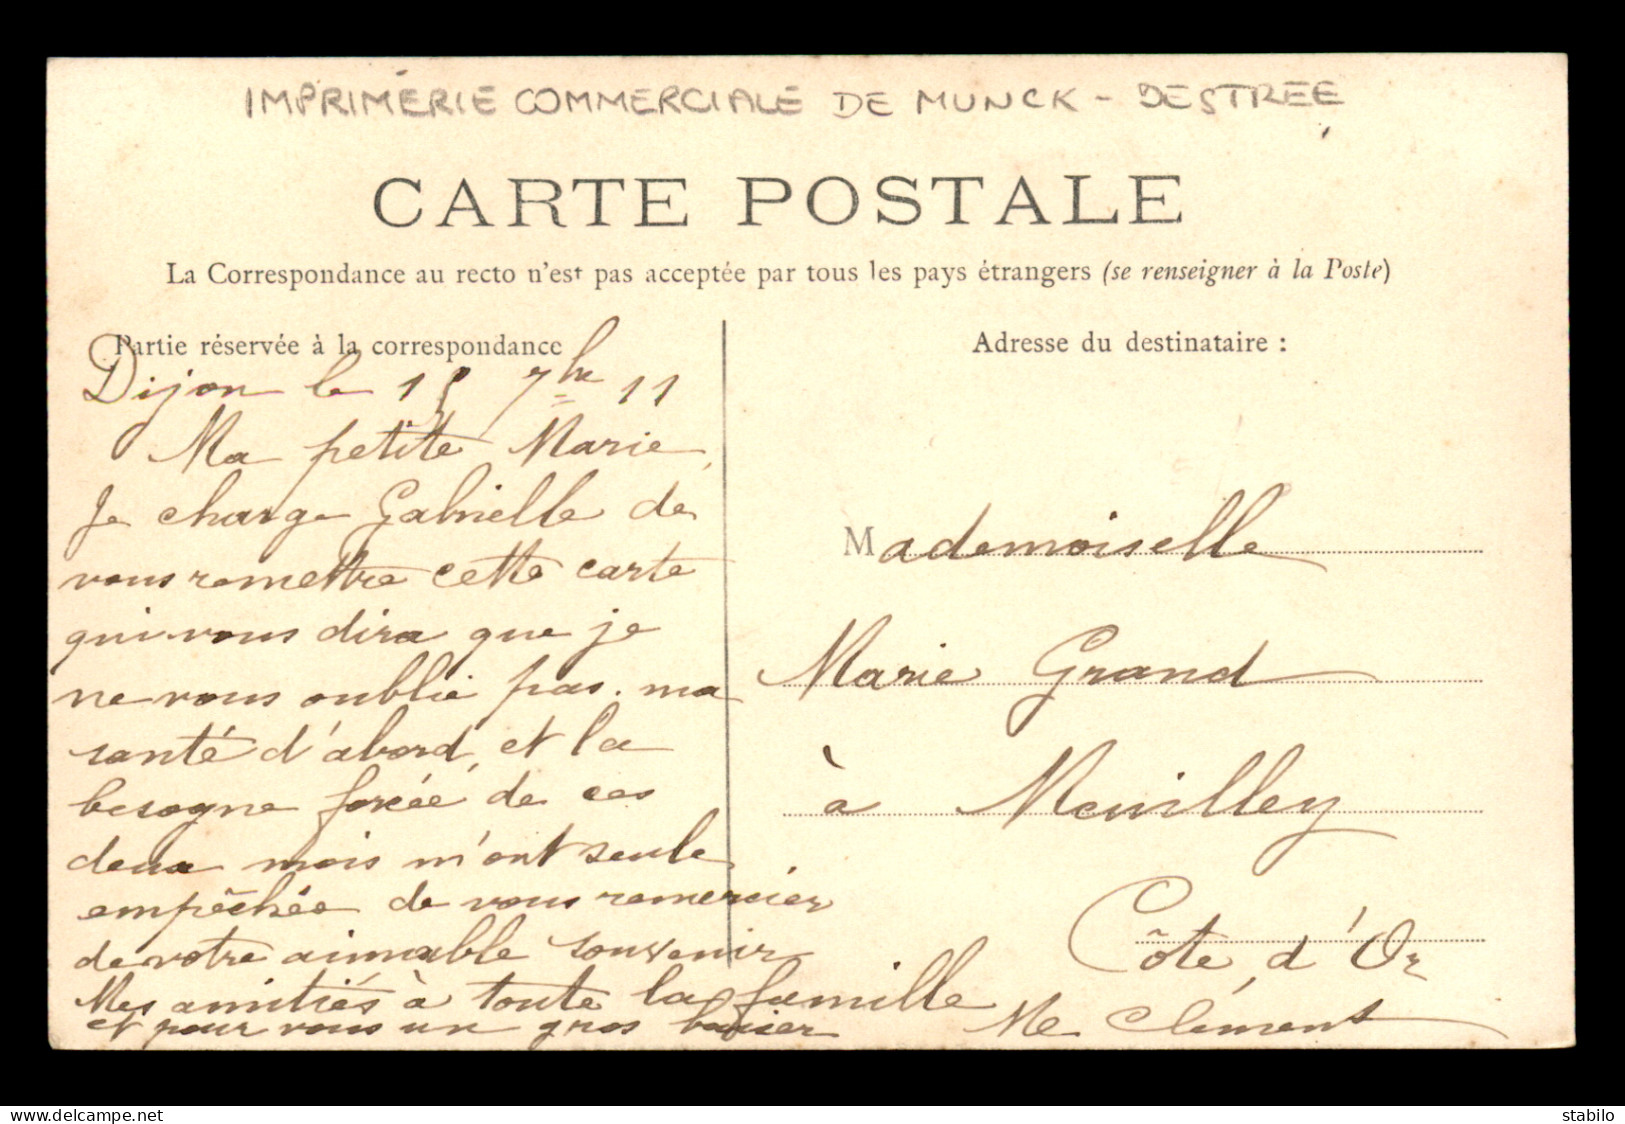 IMPRIMERIE COMMERCIALE DE MUNCK - DESTREE
CARTE POSTALE
La Correspondance au recto n'est pas acceptée par tous les pays étrangers (se renseigner à la Poste)
Partie réservée à la correspondance
Dijon le 15 7bre 11
Ma petite Marie,
Je charge Gabrielle de
vous remettre cette carte
qui vous dira que je
ne vous oublie pas. ma
santé d'abord, et la
besogne forcée de ces
deux mois m'ont seule
empêchée de vous remercier
de votre aimable souvenir
Mes amitiés à toute la famille
et pour vous un gros baiser
Me Clément
Adresse du destinataire :
Mademoiselle
Marie Grand
à Meuilley
Côte d'Or
delcampe.net
stabilo